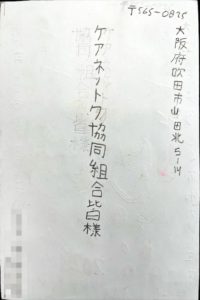 〒565-0825
大阪府吹田市山田北5-14
ケアネットク協同組合皆様